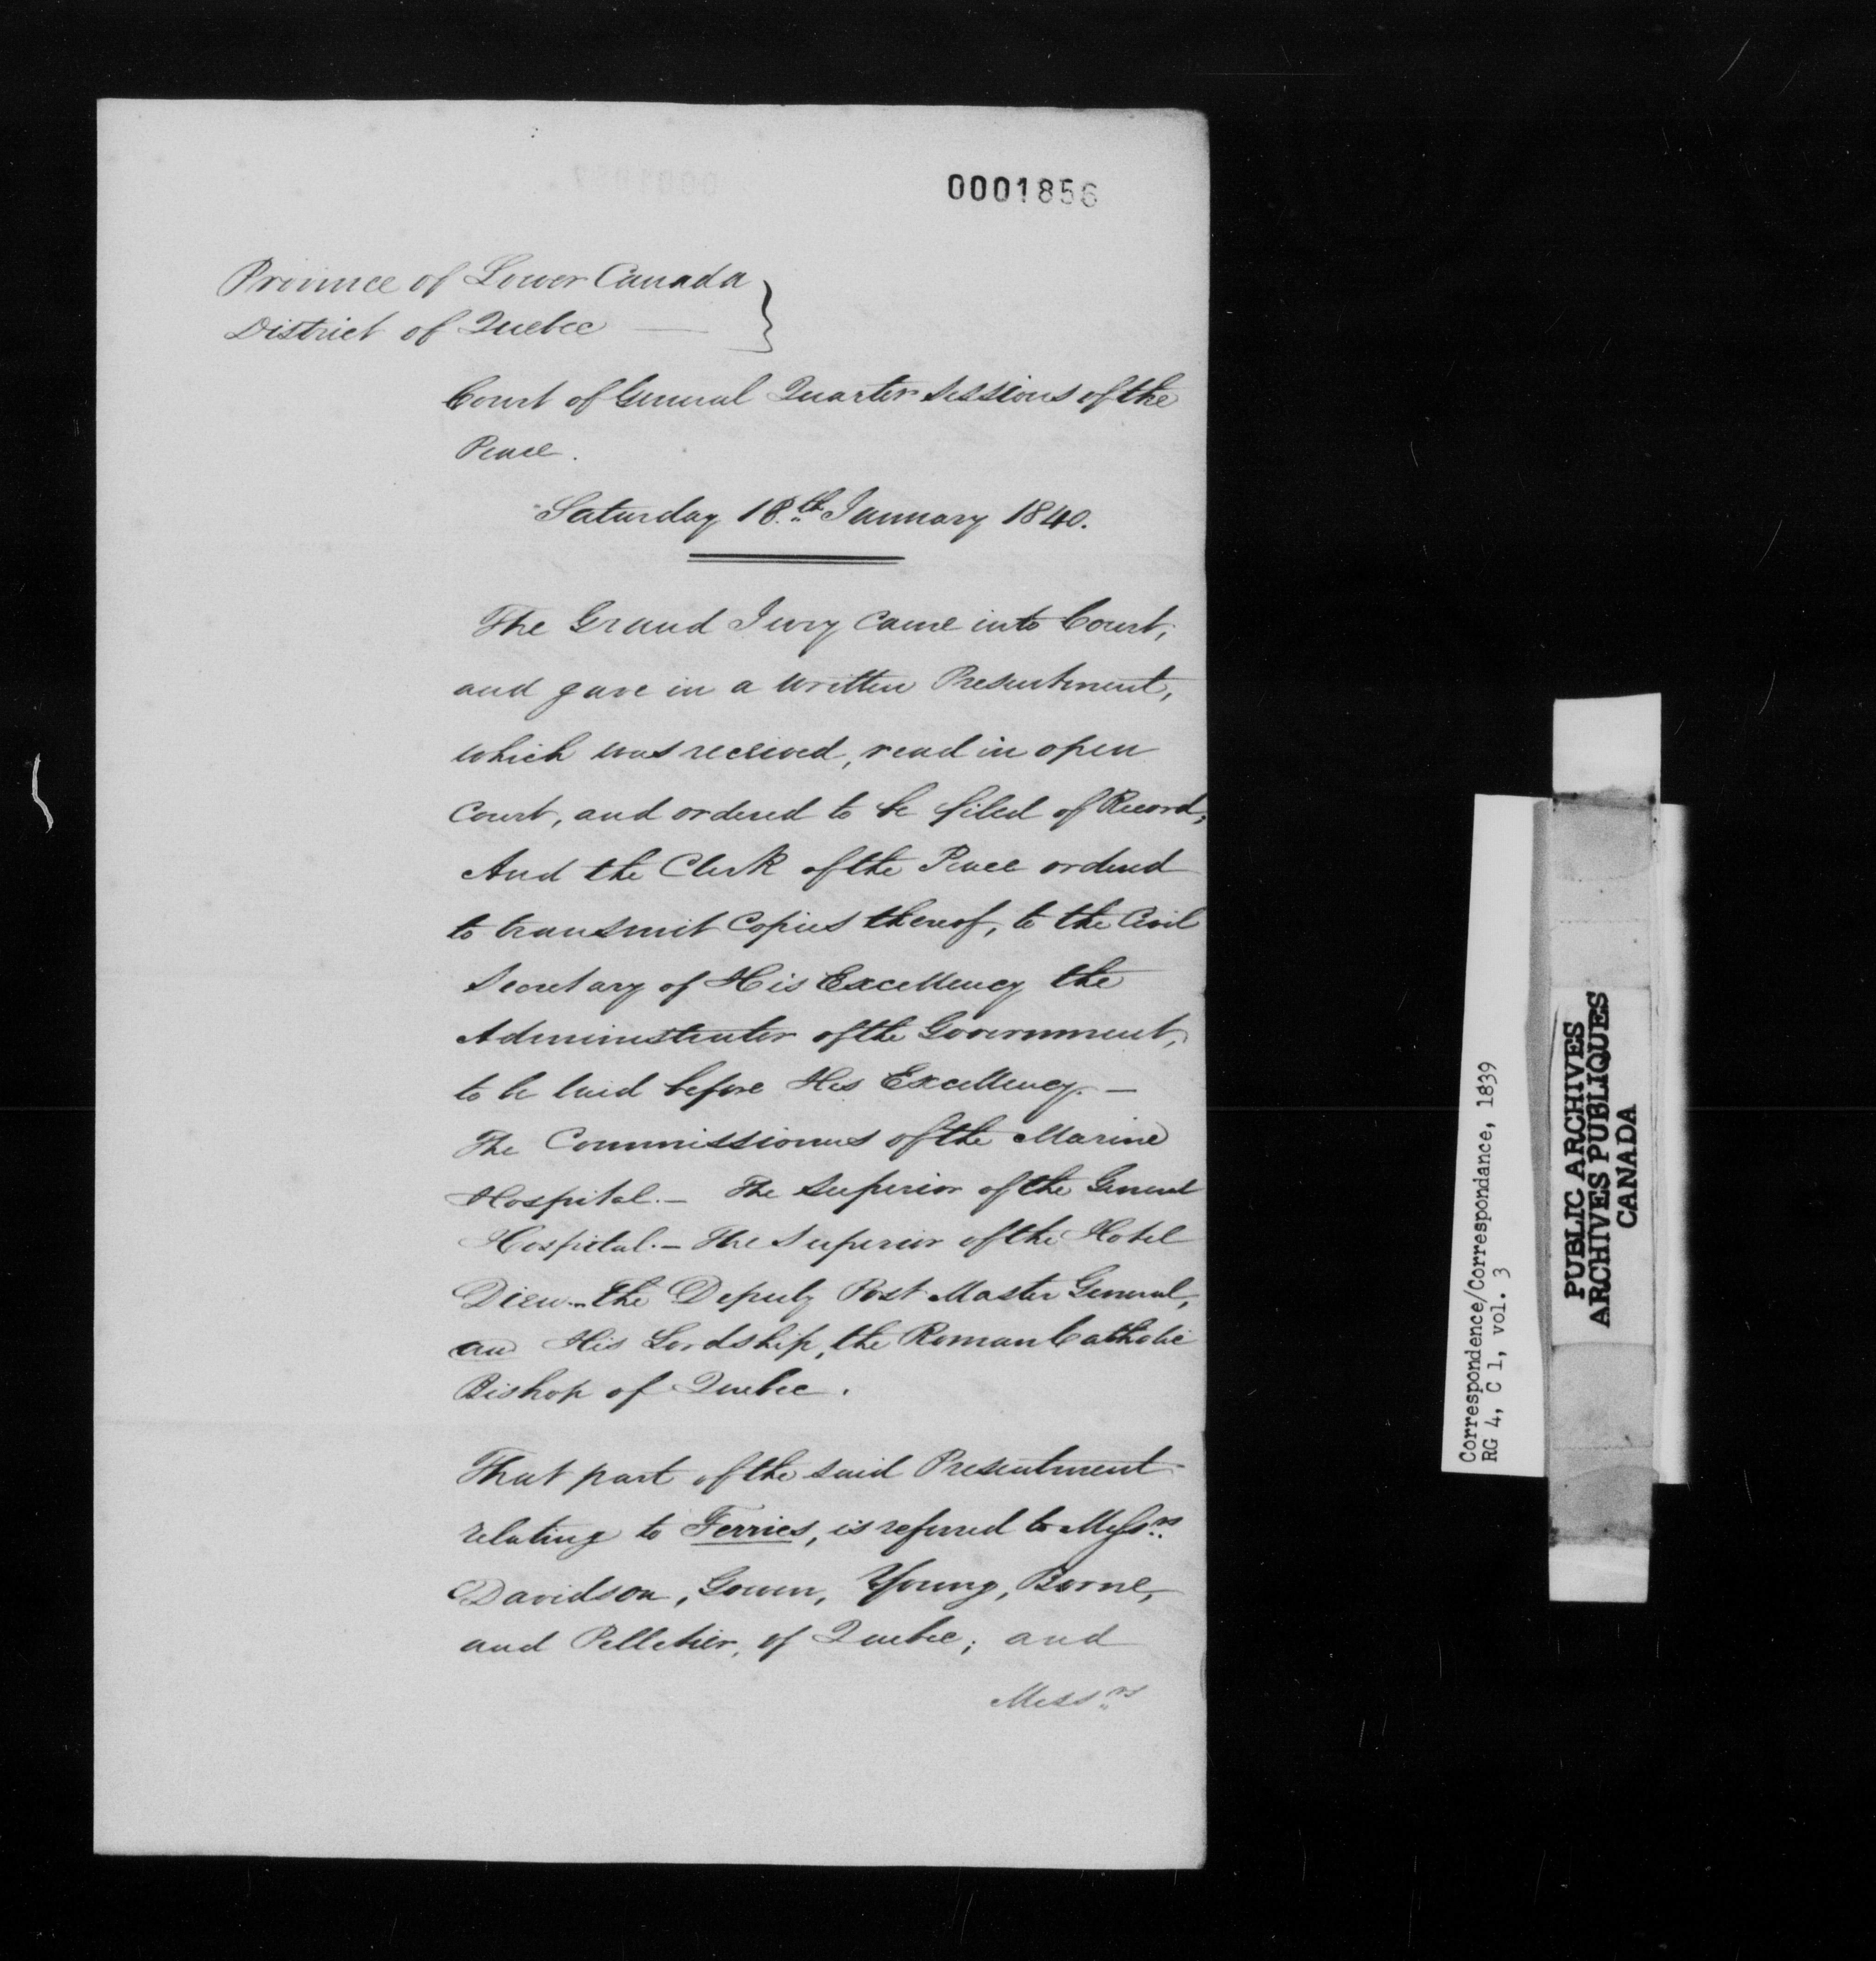 0001856
Province of Lower Canada }
District of Quebec — }
Court of General Quarter Sessions of the
Peace.
Saturday 18.th January 1840.
The Grand Jury Came into Court,
and gave in a written Presentment,
which was received, read in open
Court, and ordered to be filed of Record,
And the Clerk of the Peace ordered
to transmit Copies thereof, to the Civil
Secretary of His Excellency the
Administrator of the Government,
to be laid before His Excellency. —
The Commissioners of the Marine
Hospital. — The Superior of the General
Hospital. — The Superior of the Hotel
Dieu — the Deputy Post Master General,
and His Lordship, the Roman Catholic
Bishop of Quebec.
That part of the said Presentment
relating to Ferries, is referred to Messrs
Davidson, Gowen, Young, Borne,
and Pelletier, of Quebec; and
Messrs
Correspondence/Correspondance, 1839
RG 4, C 1, vol. 3
PUBLIC ARCHIVES
ARCHIVES PUBLIQUES
CANADA